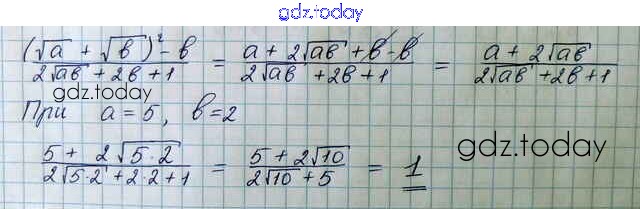 gdz.today
((√a + √b)² - b) / (2√ab + 2b + 1) = (a + 2√ab + b - b) / (2√ab + 2b + 1) = (a + 2√ab) / (2√ab + 2b + 1)
gdz.today
При a = 5, b = 2
(5 + 2√5·2) / (2√5·2 + 2·2 + 1) = (5 + 2√10) / (2√10 + 5) = 1
gdz.today